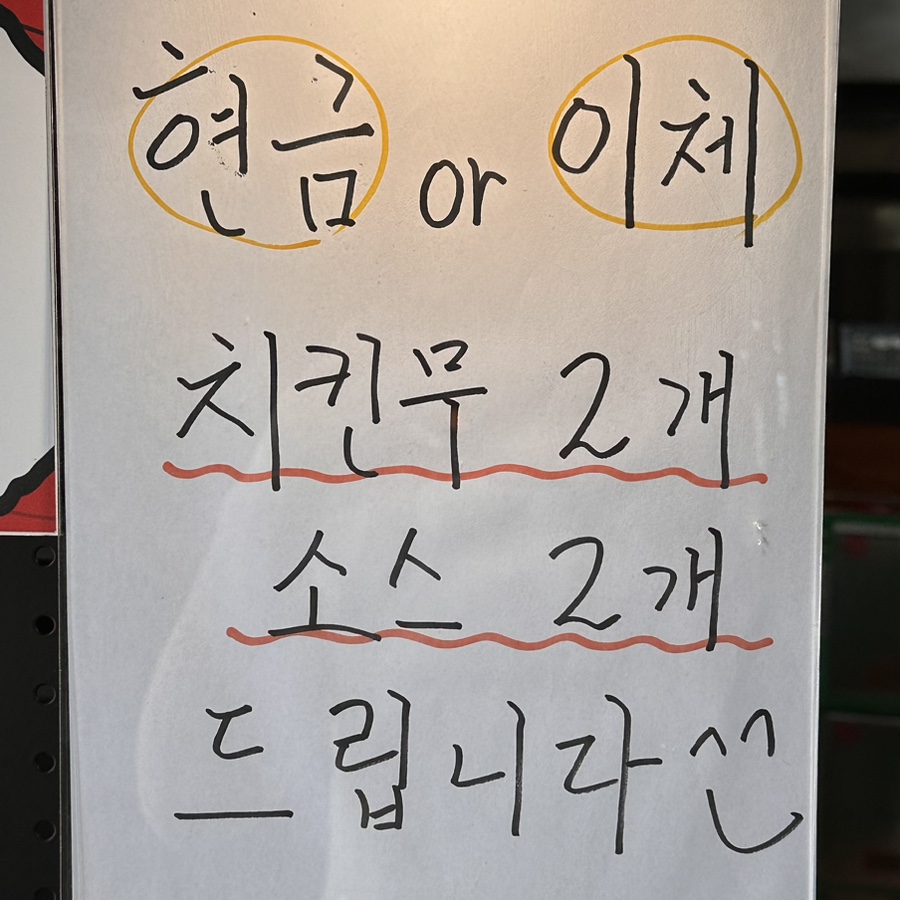 현금 or 이체
치킨무 2개
소스 2개
드립니다 ^^